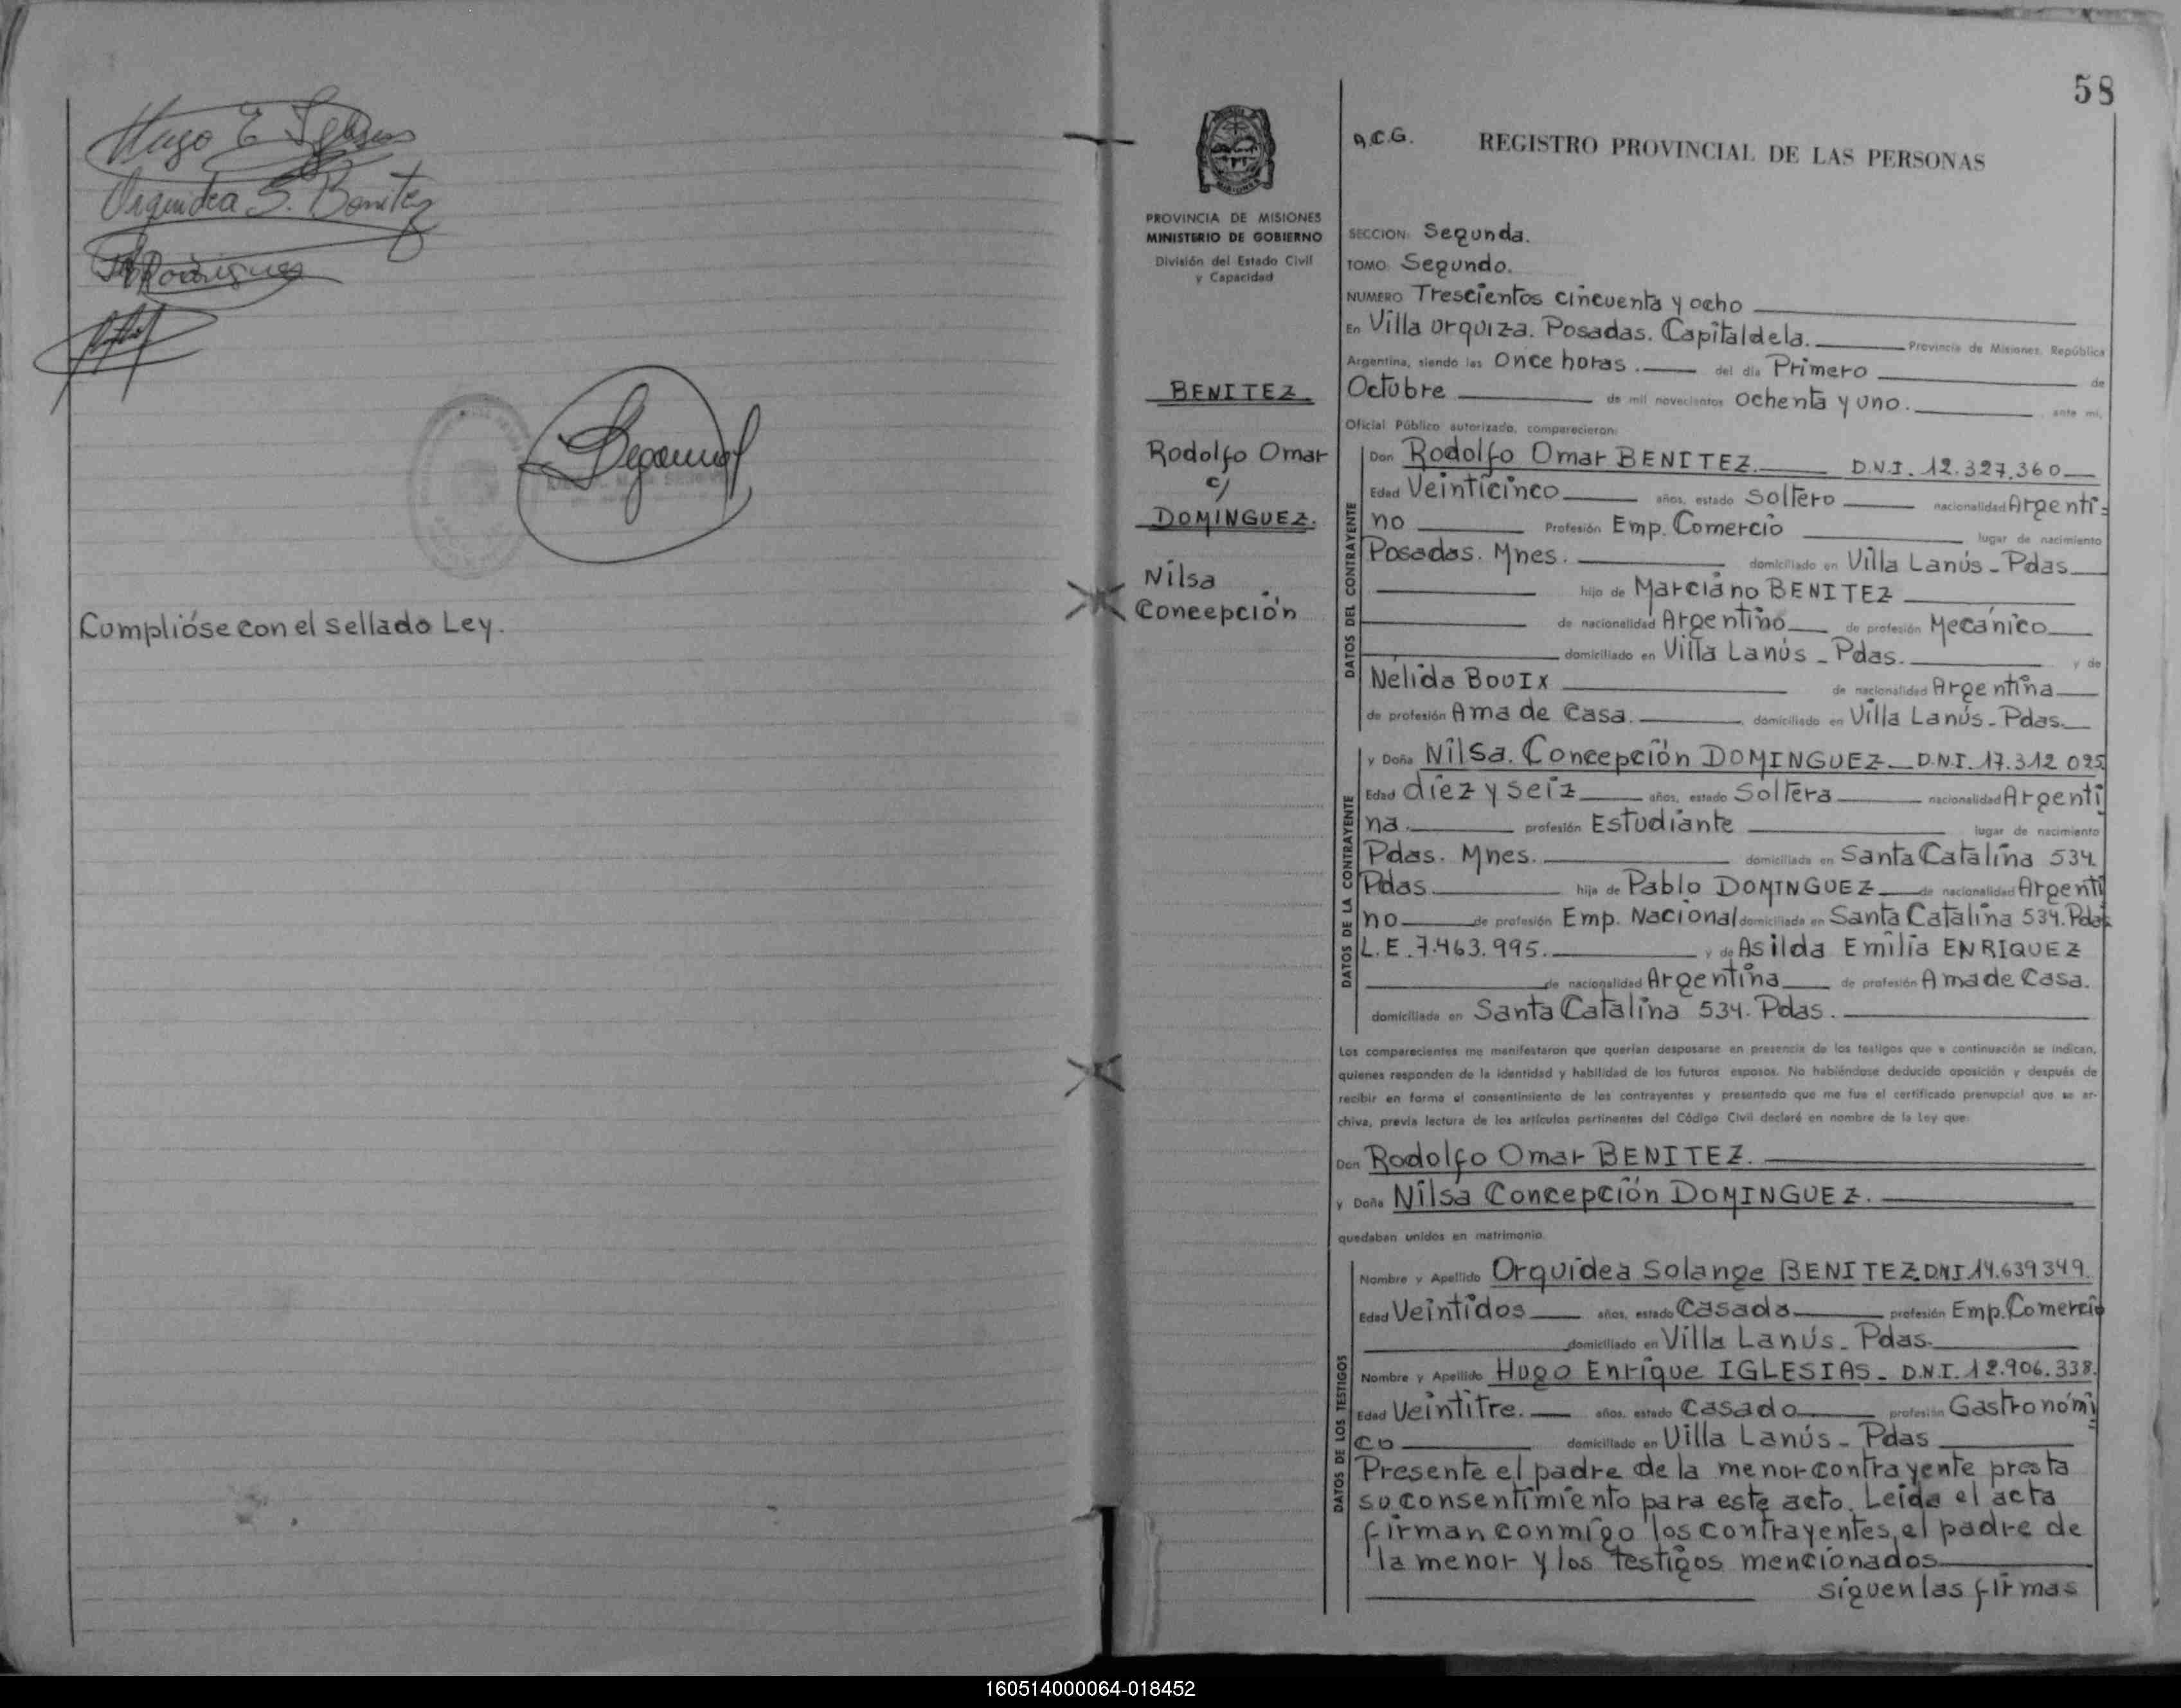 Hugo E Iglesias
Orquidea S. Benitez
Rodriguez
Cumplióse con el sellado Ley.
58
PROVINCIA DE MISIONES
MINISTERIO DE GOBIERNO
División del Estado Civil
y Capacidad
BENITEZ
Rodolfo Omar
c/
DOMINGUEZ.
Nilsa
Concepción
A.C.G. REGISTRO PROVINCIAL DE LAS PERSONAS
SECCION: Segunda.
TOMO: Segundo.
NUMERO Trescientos cincuenta y ocho
En Villa Urquiza. Posadas. Capital de la. Provincia de Misiones, República
Argentina, siendo las Once horas. del día Primero de
Octubre de mil novecientos Ochenta y uno. ante mí,
Oficial Público autorizado, comparecieron:
DATOS DEL CONTRAYENTE
Don Rodolfo Omar BENITEZ. D.N.I. 12.327.360
Edad Veinticinco años, estado Soltero nacionalidad Argenti=
no Profesión Emp. Comercio lugar de nacimiento
Posadas. Mnes. domiciliado en Villa Lanús - Pdas
hijo de Marciano BENITEZ
de nacionalidad Argentino de profesión Mecánico
domiciliado en Villa Lanús - Pdas. y de
Nelida BOUIX de nacionalidad Argentina
de profesión Ama de Casa. domiciliado en Villa Lanús - Pdas.
DATOS DE LA CONTRAYENTE
y Doña Nilsa. Concepción DOMINGUEZ D.N.I. 17.312.025
Edad diez y seiz años, estado Soltera nacionalidad Argenti
na. profesión Estudiante lugar de nacimiento
Pdas. Mnes. domiciliada en Santa Catalina 534.
Pdas. hija de Pablo DOMINGUEZ de nacionalidad Argenti
no de profesión Emp. Nacional domiciliado en Santa Catalina 534. Pdas
L.E. 7.463.995. y de Asilda Emilia ENRIQUEZ
de nacionalidad Argentina de profesión Ama de Casa.
domiciliada en Santa Catalina 534. Pdas.
Los comparecientes me manifestaron que querían desposarse en presencia de los testigos que a continuación se indican,
quienes responden de la identidad y habilidad de los futuros esposos. No habiéndose deducido oposición y después de
recibir en forma el consentimiento de los contrayentes y presentado que me fue el certificado prenupcial que se ar-
chiva, previa lectura de los artículos pertinentes del Código Civil declaré en nombre de la Ley que:
Don Rodolfo Omar BENITEZ.
y Doña Nilsa Concepción DOMINGUEZ.
quedaban unidos en matrimonio.
DATOS DE LOS TESTIGOS
Nombre y Apellido Orquídea Solange BENITEZ D.N.I. 14.639349.
Edad Veintidos años, estado Casada profesión Emp. Comercio
domiciliado en Villa Lanús - Pdas.
Nombre y Apellido Hugo Enrique IGLESIAS - D.N.I. 12.906.338.
Edad Veintitre. años, estado Casado profesión Gastronómi
co domiciliado en Villa Lanús - Pdas
Presente el padre de la menor contrayente presta
su consentimiento para este acto. Leída el acta
firman conmigo los contrayentes, el padre de
la menor y los testigos mencionados
siguen las firmas
160514000064-018452